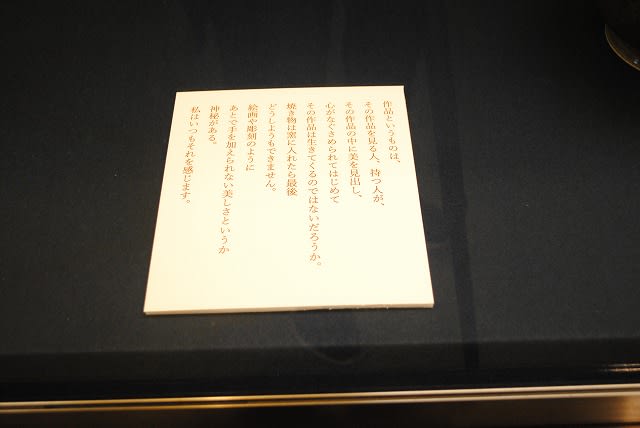 作品というものは、
その作品を見る人、持つ人が、
その作品の中に美を見出し、
心がなぐさめられてはじめて
その作品は生きてくるのではないだろうか。
焼き物は窯に入れたら最後
どうしようもできません。
絵画や彫刻のように
あとで手を加えられない美しさというか
神秘がある。
私はいつもそれを感じます。